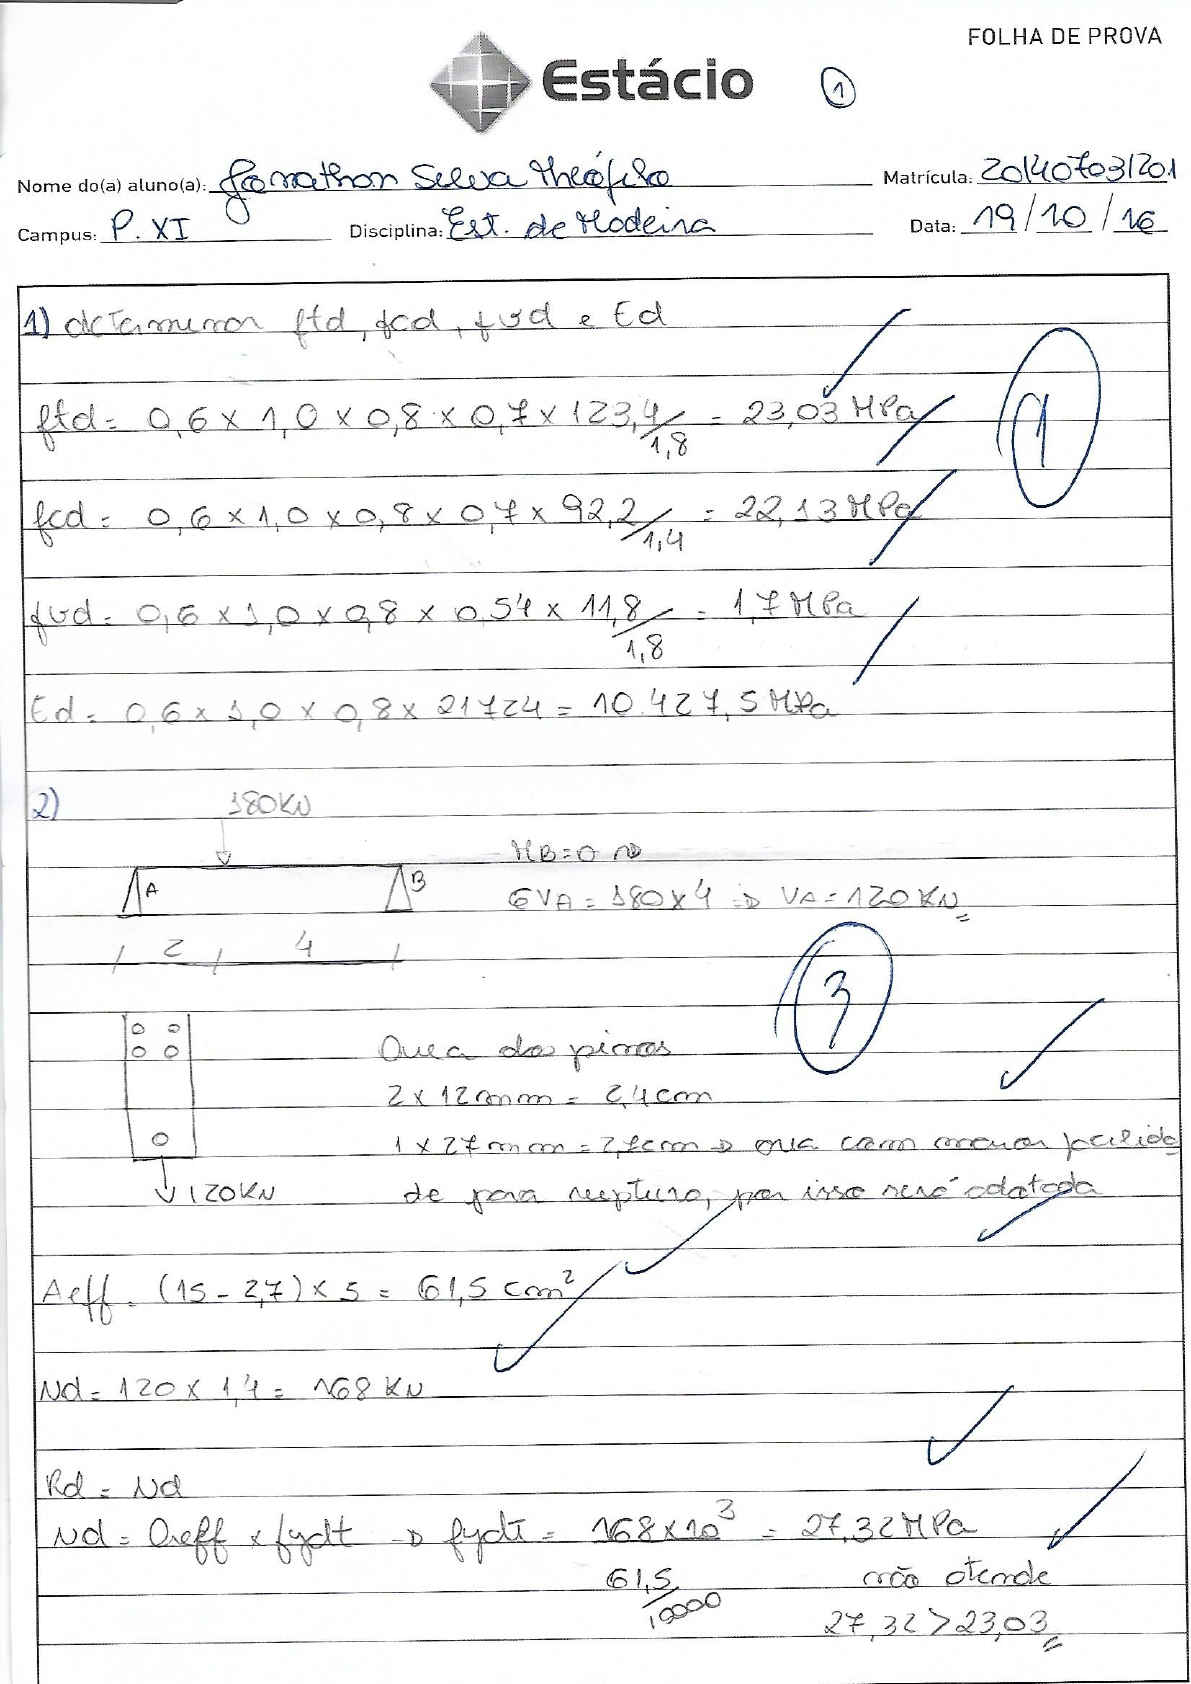 FOLHA DE PROVA
Estácio
1
Nome do(a) aluno(a): Jonathan Silva Theófilo Matrícula: 201407031201
Campus: P. XI Disciplina: Est. de Madeira Data: 19/10/16
1) determinar ftd, fcd, fvd e Ed
ftd = 0,6 x 1,0 x 0,8 x 0,7 x 123,4/1,8 = 23,03 MPa
1
fcd = 0,6 x 1,0 x 0,8 x 0,7 x 92,2/1,4 = 22,13 MPa
fvd = 0,6 x 1,0 x 0,8 x 0,54 x 11,8/1,8 = 1,7 MPa
Ed = 0,6 x 1,0 x 0,8 x 21724 = 10.427,5 MPa
2) 180KN
MB=0
A B 6VA = 180x4 => VA = 120KN
2 4
3
Área dos pinos
2 x 12mm = 2,4cm
1 x 27mm = 2,7cm → área com maior facilida
120KN de para ruptura, por isso será adotada
Aeff = (15 - 2,7) x 5 = 61,5 cm²
Nd = 120 x 1,4 = 168 KN
Rd = Nd
Nd = Aeff x fydt → fydt = 168x10³ = 27,32 MPa
61,5/10000 não atende
27,32 > 23,03